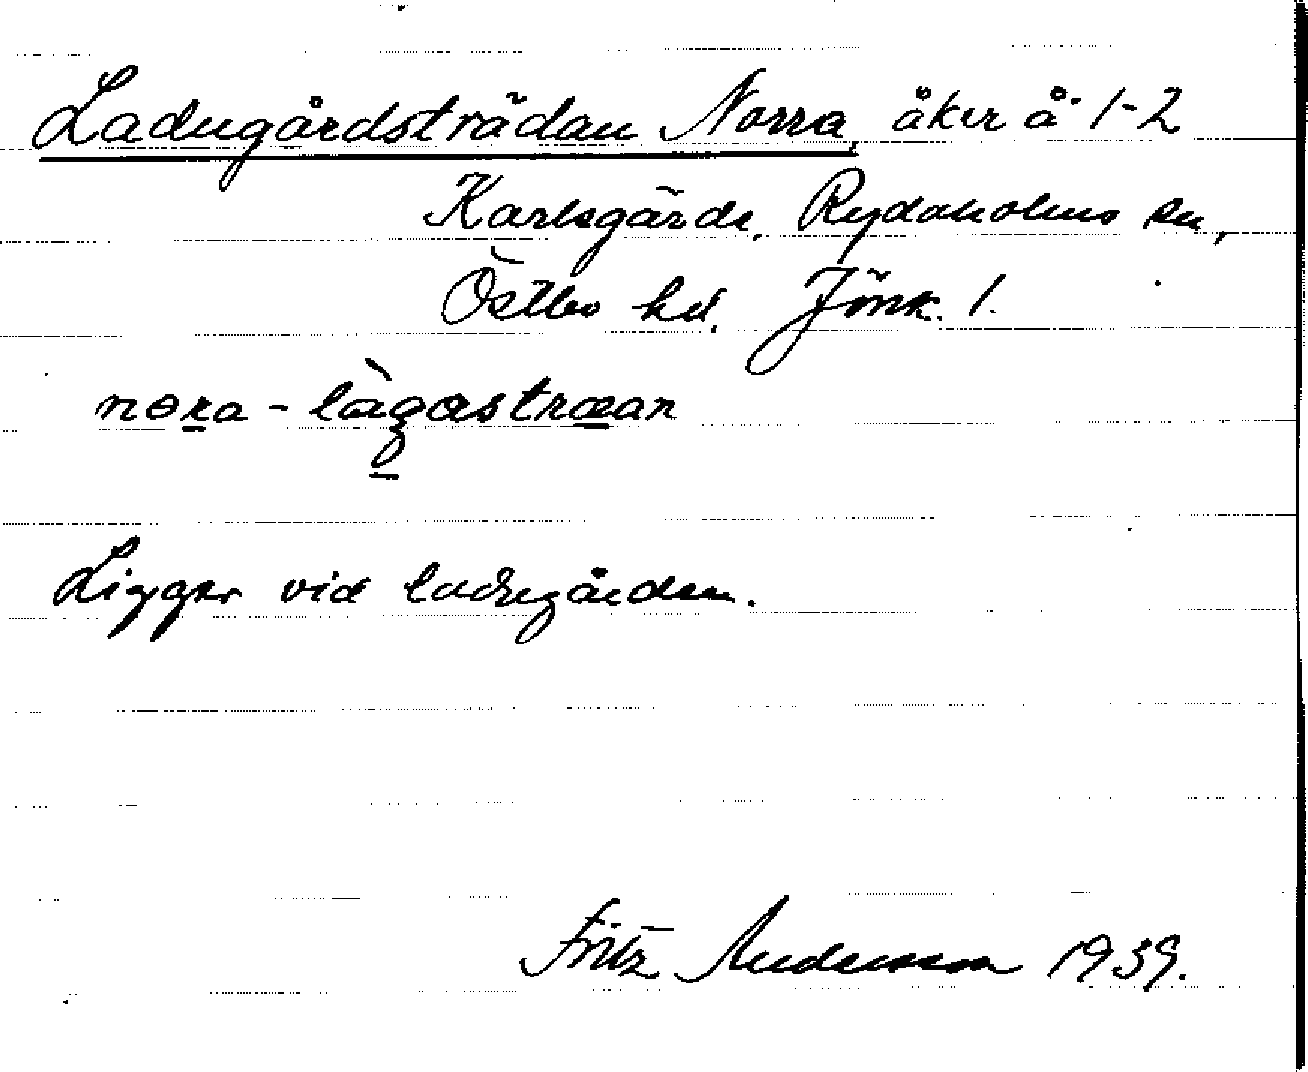 Ladugårdsträdan Norra åker å 1-2
Karlsgärde, Rydaholms sn,
Östbo hd. Jönk. l.
nɵra - làgastræan
Ligger vid ladugården.
Fritz Andersson 1939.